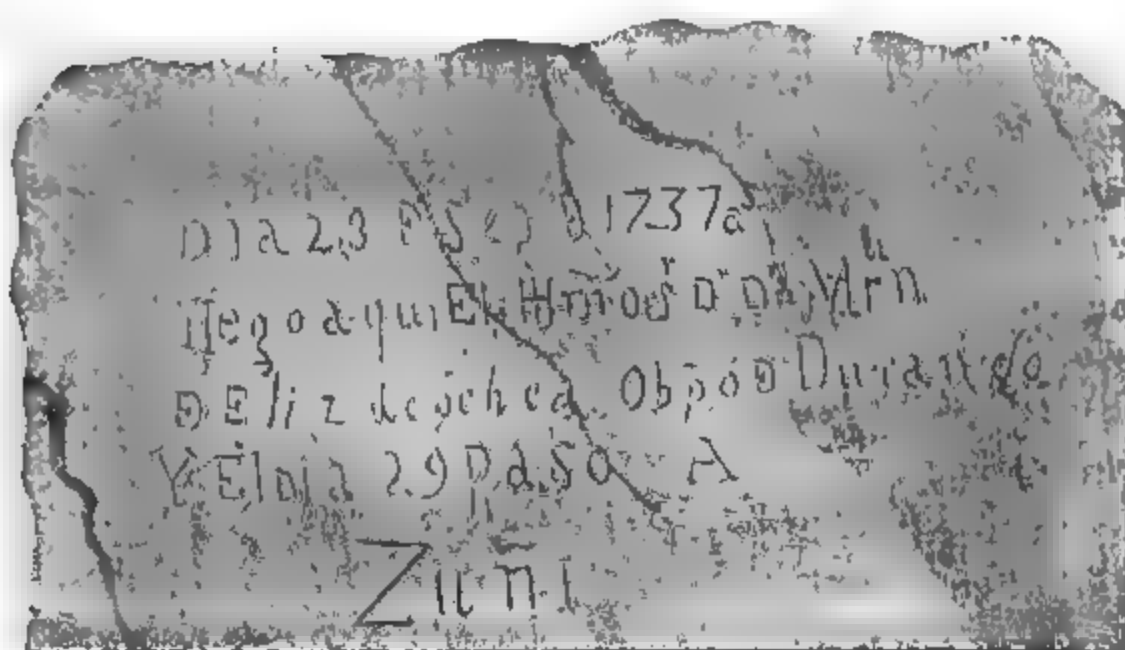 Dia 28 D Sep d 1737 a
llego aqui El Illmo Sr Dr Dn
D Eliz Obpo D Durango
Y El Dia 29 Paso A
Zuñi